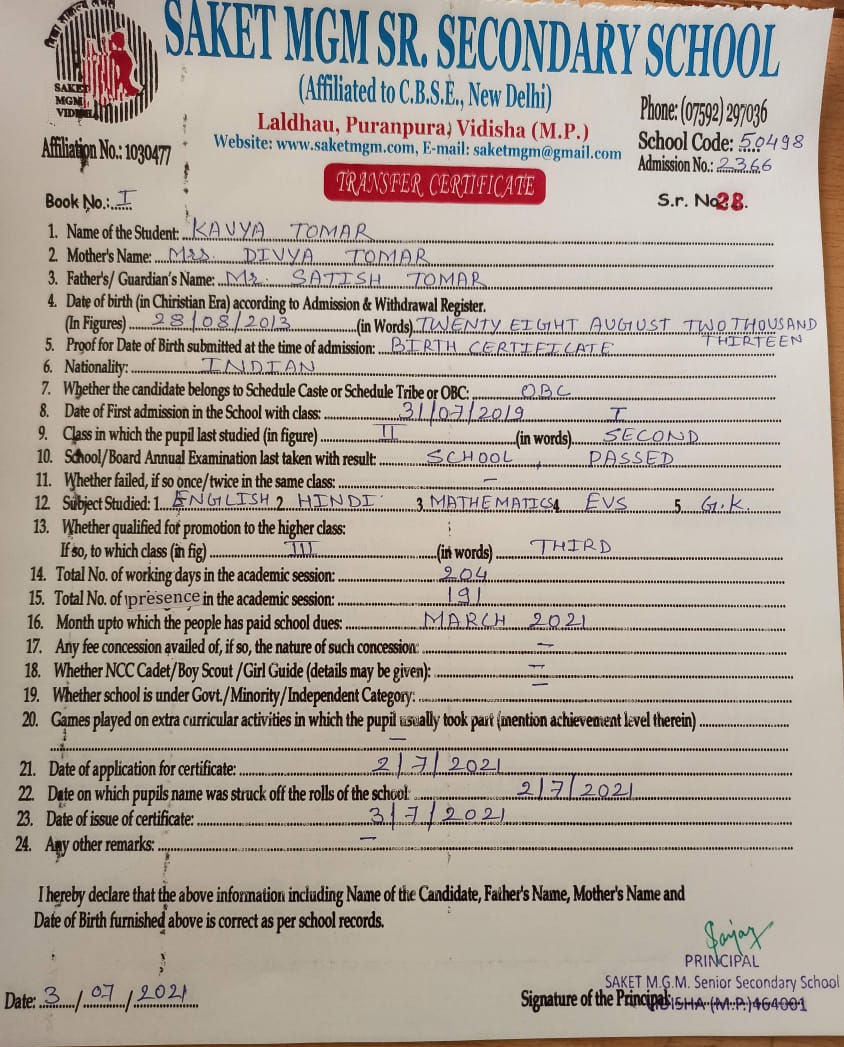 SAKET MGM SR. SECONDARY SCHOOL
(Affiliated to C.B.S.E., New Delhi)
SAKET
MGM
VIDISHA
Laldhau, Puranpura, Vidisha (M.P.)
Phone: (07592) 297036
Website: www.saketmgm.com, E-mail: saketmgm@gmail.com
School Code: 50498
Affiliation No.: 1030477
Admission No.: 2366
TRANSFER CERTIFICATE
Book No.: I
S.r. No. 28.
1. Name of the Student: KAVYA TOMAR
2. Mother's Name: Mrs. DIVYA TOMAR
3. Father's/ Guardian's Name: Mr. SATISH TOMAR
4. Date of birth (in Chiristian Era) according to Admission & Withdrawal Register.
(In Figures) 28/08/2013 (in Words) TWENTY EIGHT AUGUST TWO THOUSAND
THIRTEEN
5. Proof for Date of Birth submitted at the time of admission: BIRTH CERTIFICATE
6. Nationality: INDIAN
7. Whether the candidate belongs to Schedule Caste or Schedule Tribe or OBC: OBC
8. Date of First admission in the School with class: 31/07/2019 I
9. Class in which the pupil last studied (in figure) II (in words) SECOND
10. School/Board Annual Examination last taken with result: SCHOOL, PASSED
11. Whether failed, if so once/twice in the same class: –
12. Subject Studied: 1. ENGLISH 2. HINDI 3. MATHEMATICS 4. EVS 5. G.K.
13. Whether qualified for promotion to the higher class:
If so, to which class (in fig) III (in words) THIRD
14. Total No. of working days in the academic session: 204
15. Total No. of presence in the academic session: 191
16. Month upto which the people has paid school dues: MARCH 2021
17. Any fee concession availed of, if so, the nature of such concession: –
18. Whether NCC Cadet/Boy Scout /Girl Guide (details may be given): –
19. Whether school is under Govt./Minority/Independent Category: –
20. Games played on extra curricular activities in which the pupil usually took part (mention achievement level therein)
–
21. Date of application for certificate: 2/7/2021
22. Date on which pupils name was struck off the rolls of the school: 2/7/2021
23. Date of issue of certificate: 3/7/2021
24. Any other remarks: –
I hereby declare that the above information including Name of the Candidate, Father's Name, Mother's Name and
Date of Birth furnished above is correct as per school records.
Sanjay
PRINCIPAL
SAKET M.G.M. Senior Secondary School
Date: 3/07/2021
Signature of the Principal: VIDISHA (M.P.) 464001